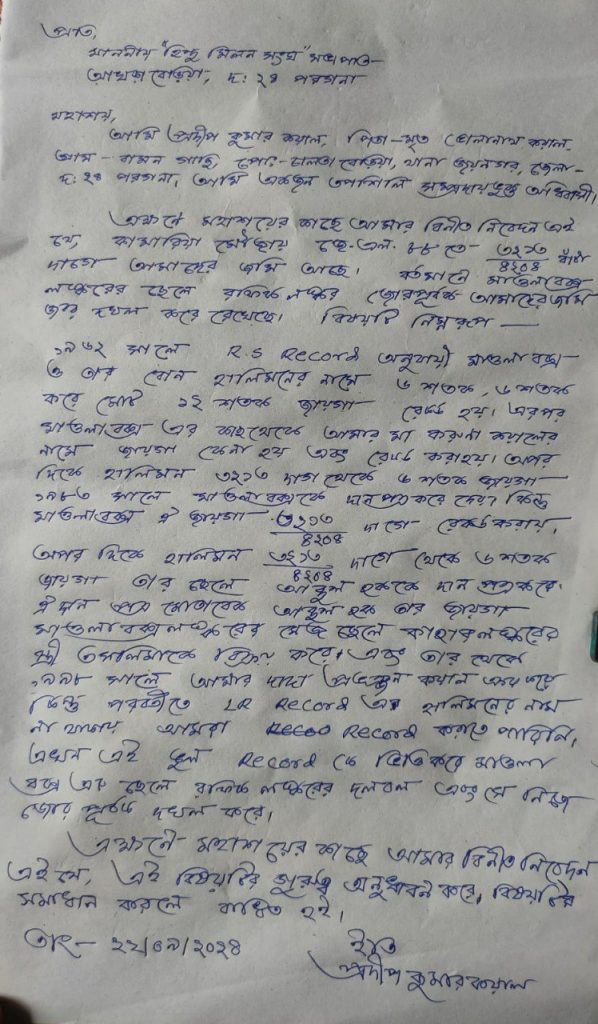 প্রতি,
মাননীয় "হিন্দু মিলন সংঘ" সভাপতি
দ: ২৪ পরগনা
মহাশয়,
আমি প্রদীপ কুমার কয়াল, পিতা-মৃত ভোলানাথ কয়াল,
গ্রাম - বামন গাছি, পোঃ- চালতা বেড়িয়া, থানা জয়নগর, জেলা-
দ: ২৪ পরগনা, আমি একজন তপশিলি সম্প্রদায়ভুক্ত অধিবাসী।
এক্ষনে মহাশয়ের কাছে আমার বিনীত নিবেদন এই
যে, কামারিয়া মৌজায় জে.এল. ৮৮ তে- ৩২১৩/৪২০৪
দাগে আমাদের জমি আছে। বর্তমানে মাওলাবক্স
লস্করের ছেলে রফিক লস্কর জোরপূর্বক আমাদের জমি
দখল করে রেখেছে। বিষয়টি নিম্নরূপ —
১৯৬২ সালে R.S Record অনুযায়ী মাওলা বক্স
ও তার বোন হালিমনের নামে ৬ শতক, ৬ শতক
করে মোট ১২ শতক জায়গা রেকর্ড হয়। এরপর
মাওলাবক্স এর কাছ থেকে আমার মা করুনা কয়ালের
নামে জায়গা কেনা হয় এবং রেকর্ড করা হয়। অপর
দিকে হালিমন ৩২১৩ দাগ থেকে ৬ শতক জায়গা
১৯৮৩ সালে মাওলাবক্সকে দানপত্র করে দেয়। কিন্তু
মাওলাবক্স ঐ জায়গা ৩২১৩/৪২০৪ দাগে রেকর্ড করায়,
অপর দিকে হালিমন ৩২১৩/৪২০৪ দাগে থেকে ৬ শতক
জায়গা তার ছেলে আব্দুল হককে দান পত্র করে।
ঐ দান পত্র মোতাবেক আব্দুল হক তার জায়গা
মাওলাবক্স লস্করের মেজ ছেলে লস্করের
স্ত্রী তসলিমাকে বিক্রয় করে। এবং তার থেকে
১৯৯৮ সালে আমার দাদা কয়াল ক্রয় করে
কিন্তু পরবর্তীতে LR Record এ হালিমনের নাম
না থাকায় আমরা Record করতে পারিনি,
এখন এই ভুল Record কে ভিত্তি করে মাওলা
বক্স এর ছেলে রফিক লস্করের দলবল এবং সে নিজে
জোর পূর্বক দখল করে।
এক্ষনে- মহাশয়ের কাছে আমার বিনীত নিবেদন
এই যে, এই বিষয়টির গুরুত্ব অনুধাবন করে, বিষয়টির
সমাধান করলে বাধিত হই।
তাং- ২২/০৯/২০২৪ ইতি
প্রদীপ কুমার কয়াল